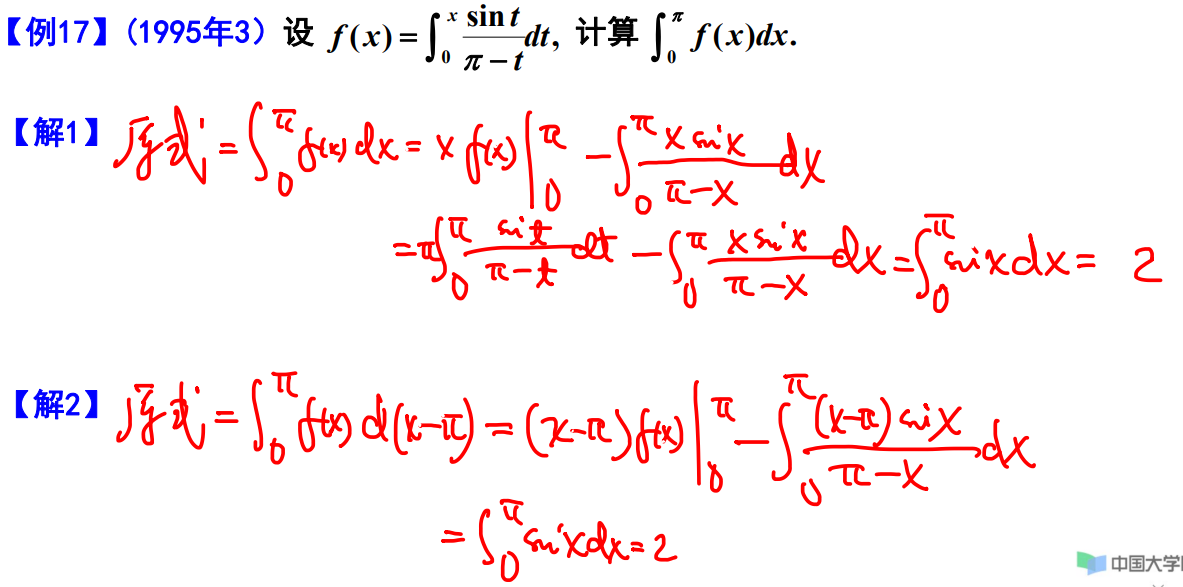 【例17】(1995年3) 设 f(x) = ∫₀ˣ sin t/(π − t) dt, 计算 ∫₀^π f(x)dx.
【解1】 原式 = ∫₀^π f(x) dx = x f(x) |₀^π − ∫₀^π x sin x/(π − x) dx
= π∫₀^π sin t/(π − t) dt − ∫₀^π x sin x/(π − x) dx = ∫₀^π sin x dx = 2
【解2】 原式 = ∫₀^π f(x) d(x−π) = (x−π) f(x) |₀^π − ∫₀^π (x−π) sin x/(π − x) dx
= ∫₀^π sin x dx = 2
中国大学